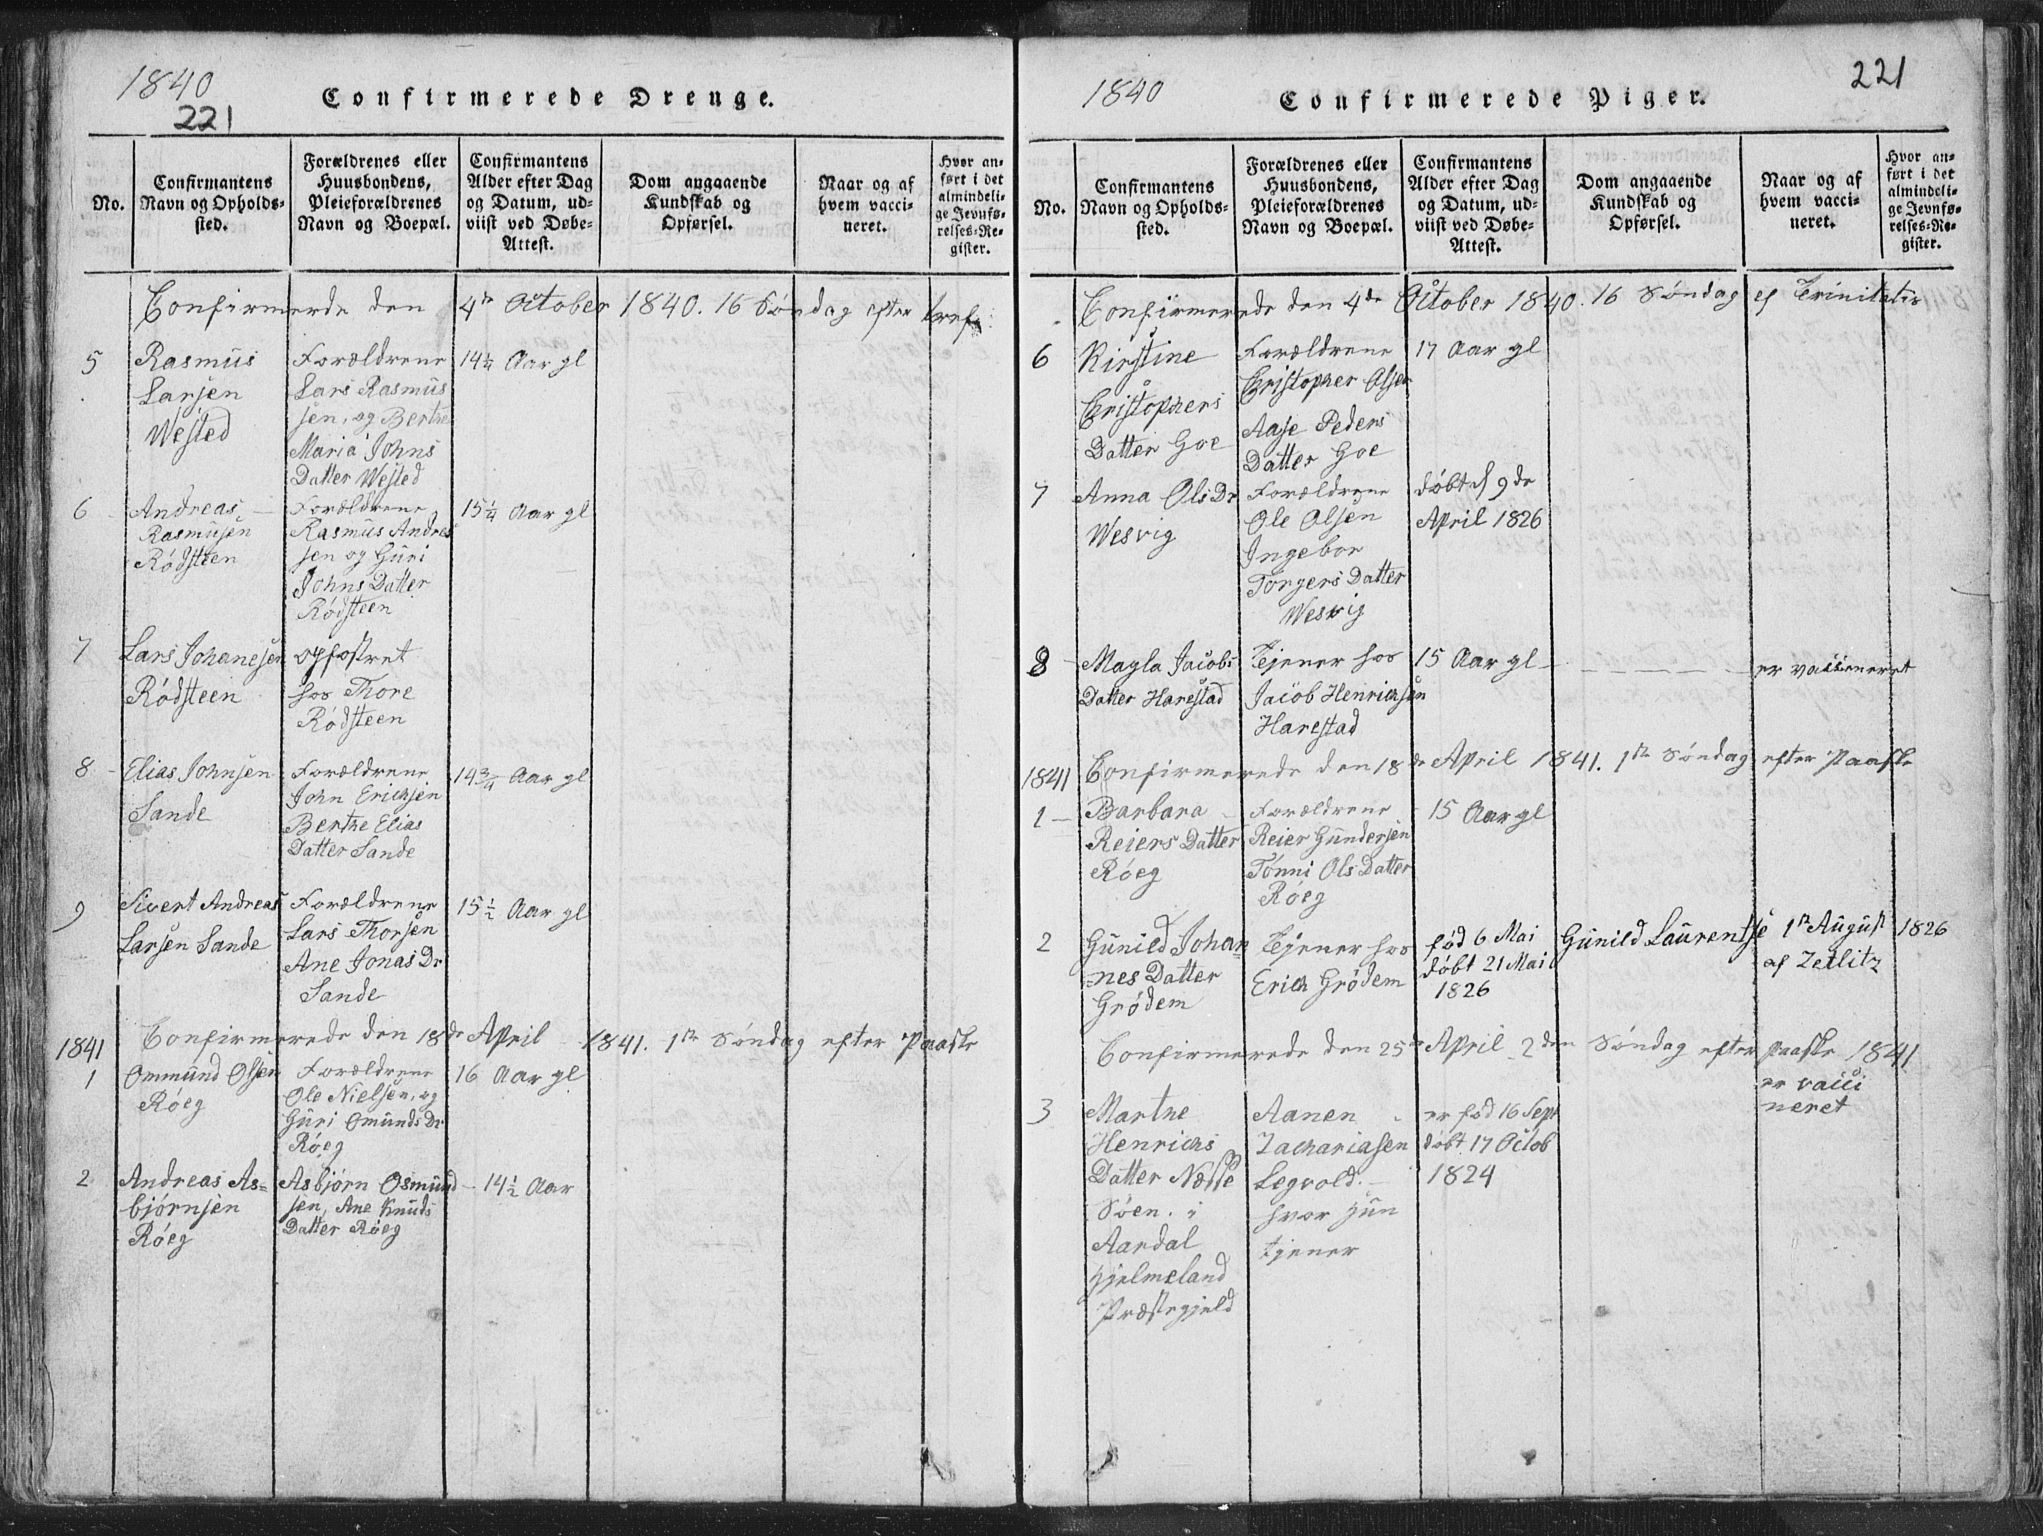 1840
221
Confirmerede Drenge.
No.
Confirmantens
Navn og Opholds-
sted.
Forældrenes eller
Huusbondens,
Pleieforældrenes
Navn og Boepæl.
Confirmantens
Alder efter Dag
og Datum, ud-
viist ved Døbe-
Attest.
Dom angaaende
Kundskab og
Opførsel.
Naar og af
hvem vacci-
neret.
Hvor an-
ført i det
almindeli-
ge Jevnfø-
relses-Re-
gister.
Confirmerede den 4de October 1840. 16 Søndag efter tref.
5
Rasmus
Larsen
Wested
Forældrene
Lars Rasmus
sen, og Berthe
Maria Johns
Datter Wested
14 1/4 Aar gl
6
Andreas
Rasmusen
Rødsteen
Forældrene
Rasmus Andrea
sen og Guri
Johns Datter
Rødsteen
15 1/4 Aar gl
7
Lars Johanesen
Rødsteen
opfostret
hos Thore
Rødsteen
8
Elias Johnsen
Sande
Forældrene
John Erichsen
Berthe Elias
Datter Sande
14 3/4 Aar gl
9
Sivert Andreas
Larsen Sande
Forældrene
Lars Thorsen
Ane Jonas Dr
Sande
15 1/2 Aar gl
1841
Confirmerede den 18de April 1841. 1ste Søndag efter Paaske
1
Ommund Olsen
Røeg
Forældrene
Ole Nielsen, og
Guri Omunds Dr
Røeg
16 Aar gl
2
Andreas As=
bjørnsen
Røeg
Asbjørn Osmund
sen, Ane Knuds
Datter Røeg
14 1/2 Aar
1840
221
Confirmerede Piger.
No.
Confirmantens
Navn og Opholds-
sted.
Forældrenes eller
Huusbondens,
Pleieforældrenes
Navn og Boepæl.
Confirmantens
Alder efter Dag
og Datum, ud-
viist ved Døbe-
Attest.
Dom angaaende
Kundskab og
Opførsel.
Naar og af
hvem vacci-
neret.
Hvor an-
ført i det
almindeli-
ge Jevnfø-
relses-Re-
gister.
Confirmerede den 4de October 1840. 16 Søndag ef Trinitatis
6
Kirstine
Christophers
Datter Goe
Forældrene
Christopher Olsen
Aase Peders
Datter Goe
17 Aar gl
7
Anna Ols Dr
Wesvig
Forældrene
Ole Olsen
Ingebor
Torgers Datter
Wesvig
døbt d 9de
April 1826
8
Magla Jacobs
Datter Harestad
Tjener hos
Jacob Henrichsen
Harestad
15 Aar gl
er vaccineret
1841
Confirmerede den 18de April 1841. 1ste Søndag efter Paaske
1
Barbara
Reiers Datter
Røeg
Forældrene
Reier Gundersen
Tønni Ols Datter
Røeg
15 Aar gl
2
Gunild Johan
nes Datter
Grødem
Tjener hos
Erich Grødem
fød 6 Mai
døbt 21 Mai
1826
Gunild Laurentse
1ste August 1826
af Zetlitz
Confirmerede den 25de April 2den Søndag efter paaske 1841
3
Marthe
Henrichs
Datter Nesse
Søen. i
Aardal
Hjelmeland
Præstegjeld
Aanen
Zachariasen
Legvold.
hvor hun
tjener
er fød 16 Sept
døbt 17 Octob
1824
er vacci
neret